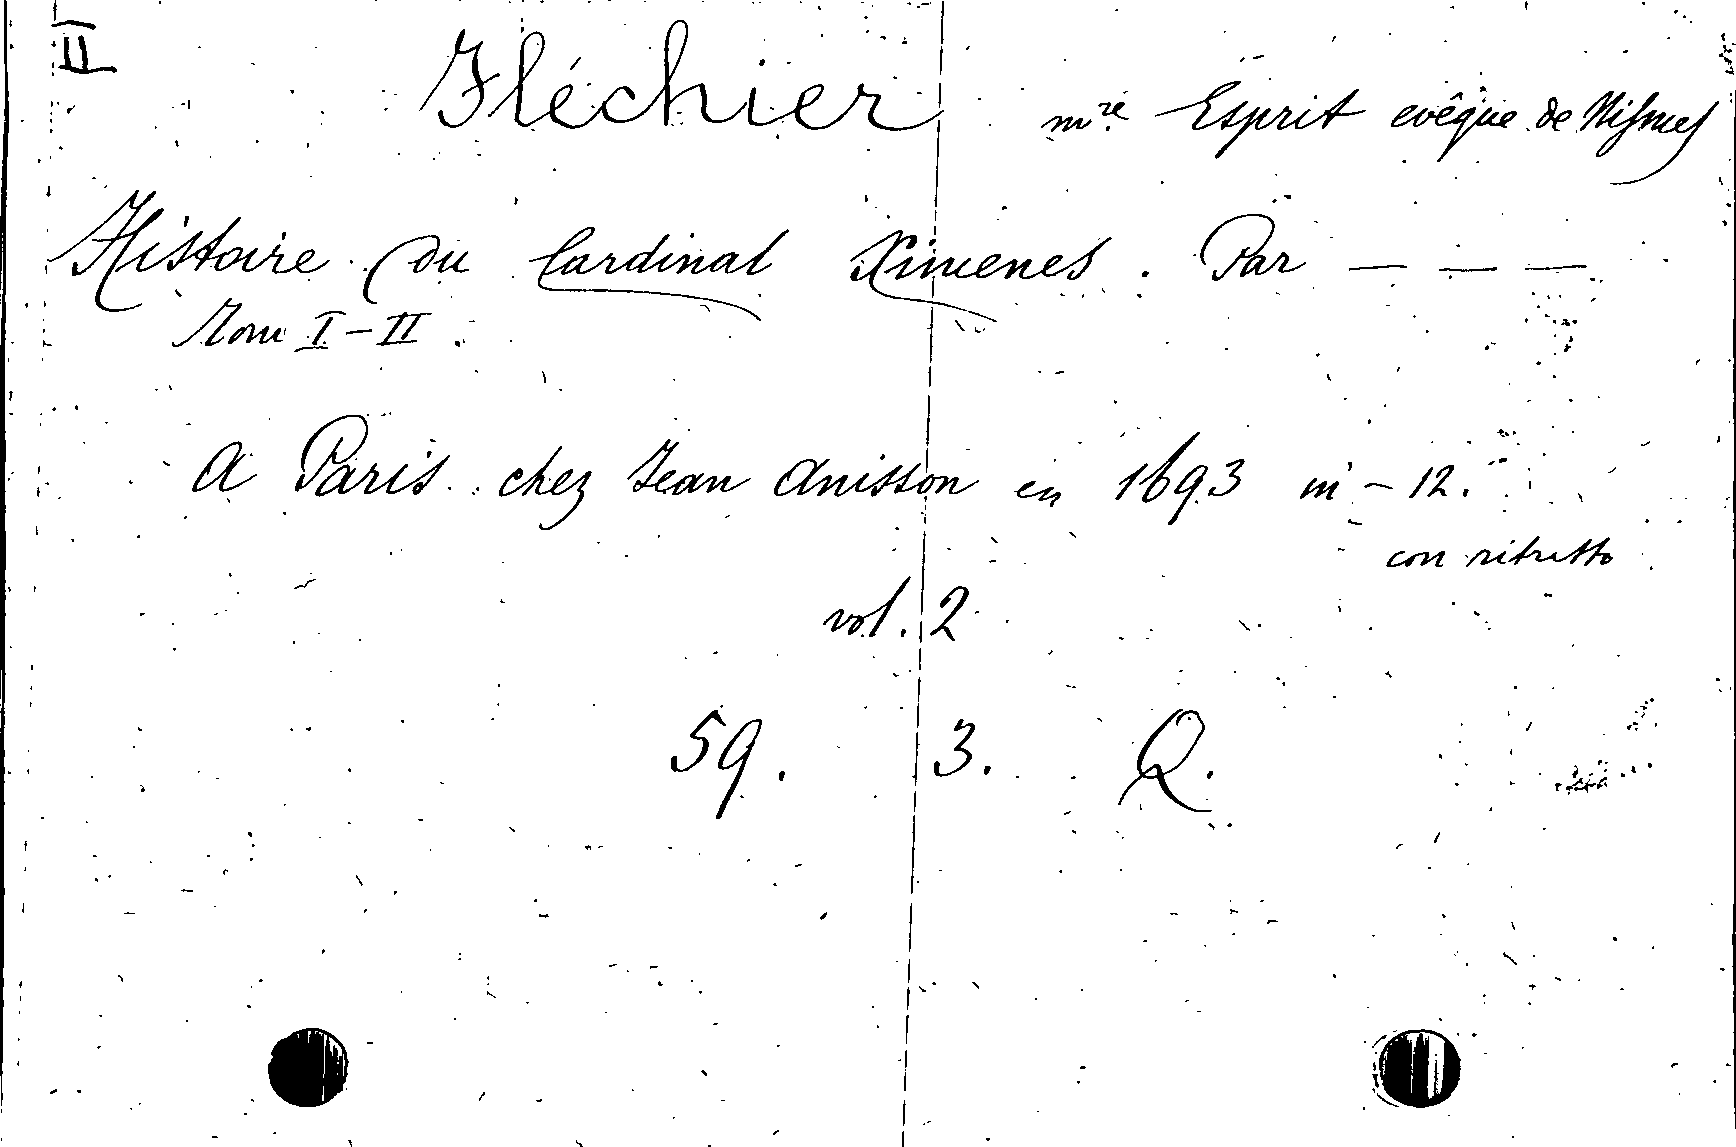 Fléchier mre Esprit evêque de Nismes
Histoire du Cardinal Ximenes. Par — — —
Tom I-II.
A Paris chez Jean Anisson en 1693 in-12.
con ritratto
vol. 2
59. 3. Q.